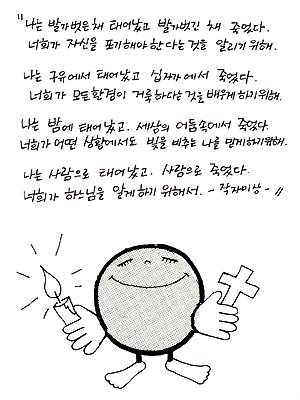 " 나는 발가벗은채 태어났고 발가벗긴 채 죽었다.
너희가 자신을 포기해야 한다는 것을 알리기 위해.
나는 구유에서 태어났고 십자가에서 죽었다.
너희가 모든환경이 거룩하다는 것을 배우게 하기위해.
나는 밤에 태어났고. 세상의 어둠속에서 죽었다.
너희가 어떤 상황에서도 빛을 비추는 나를 믿게하기위해.
나는 사람으로 태어났고. 사람으로 죽었다.
너희가 하느님을 알게하기 위해서. - 각자이상 - "